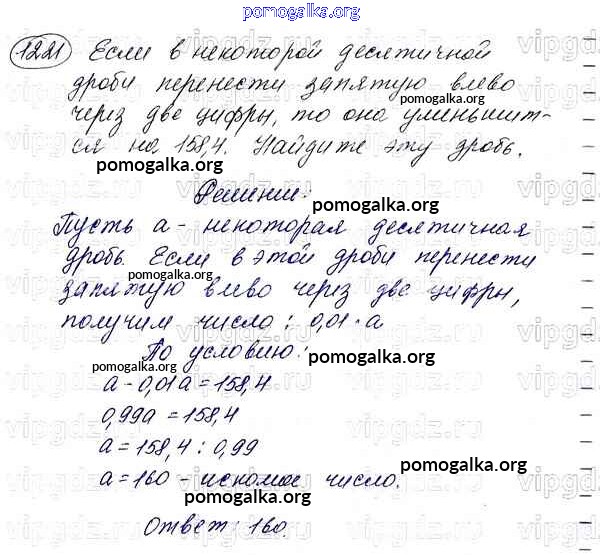 pomogalka.org
1221 Если в некоторой десятичной
дроби перенести запятую влево
через две цифры, то она уменьшит-
ся на 158,4. Найдите эту дробь.
pomogalka.org
pomogalka.org
Решение:
pomogalka.org
Пусть а - некоторая десятичная
дробь. Если в этой дроби перенести
pomogalka.org
запятую влево через две цифры,
получим число: 0,01·а
По условию:
pomogalka.org
pomogalka.org
а - 0,01а = 158,4
0,99а = 158,4
а = 158,4 : 0,99
pomogalka.org
а = 160 - искомое число.
pomogalka.org
Ответ: 160.
vipgdz.ru